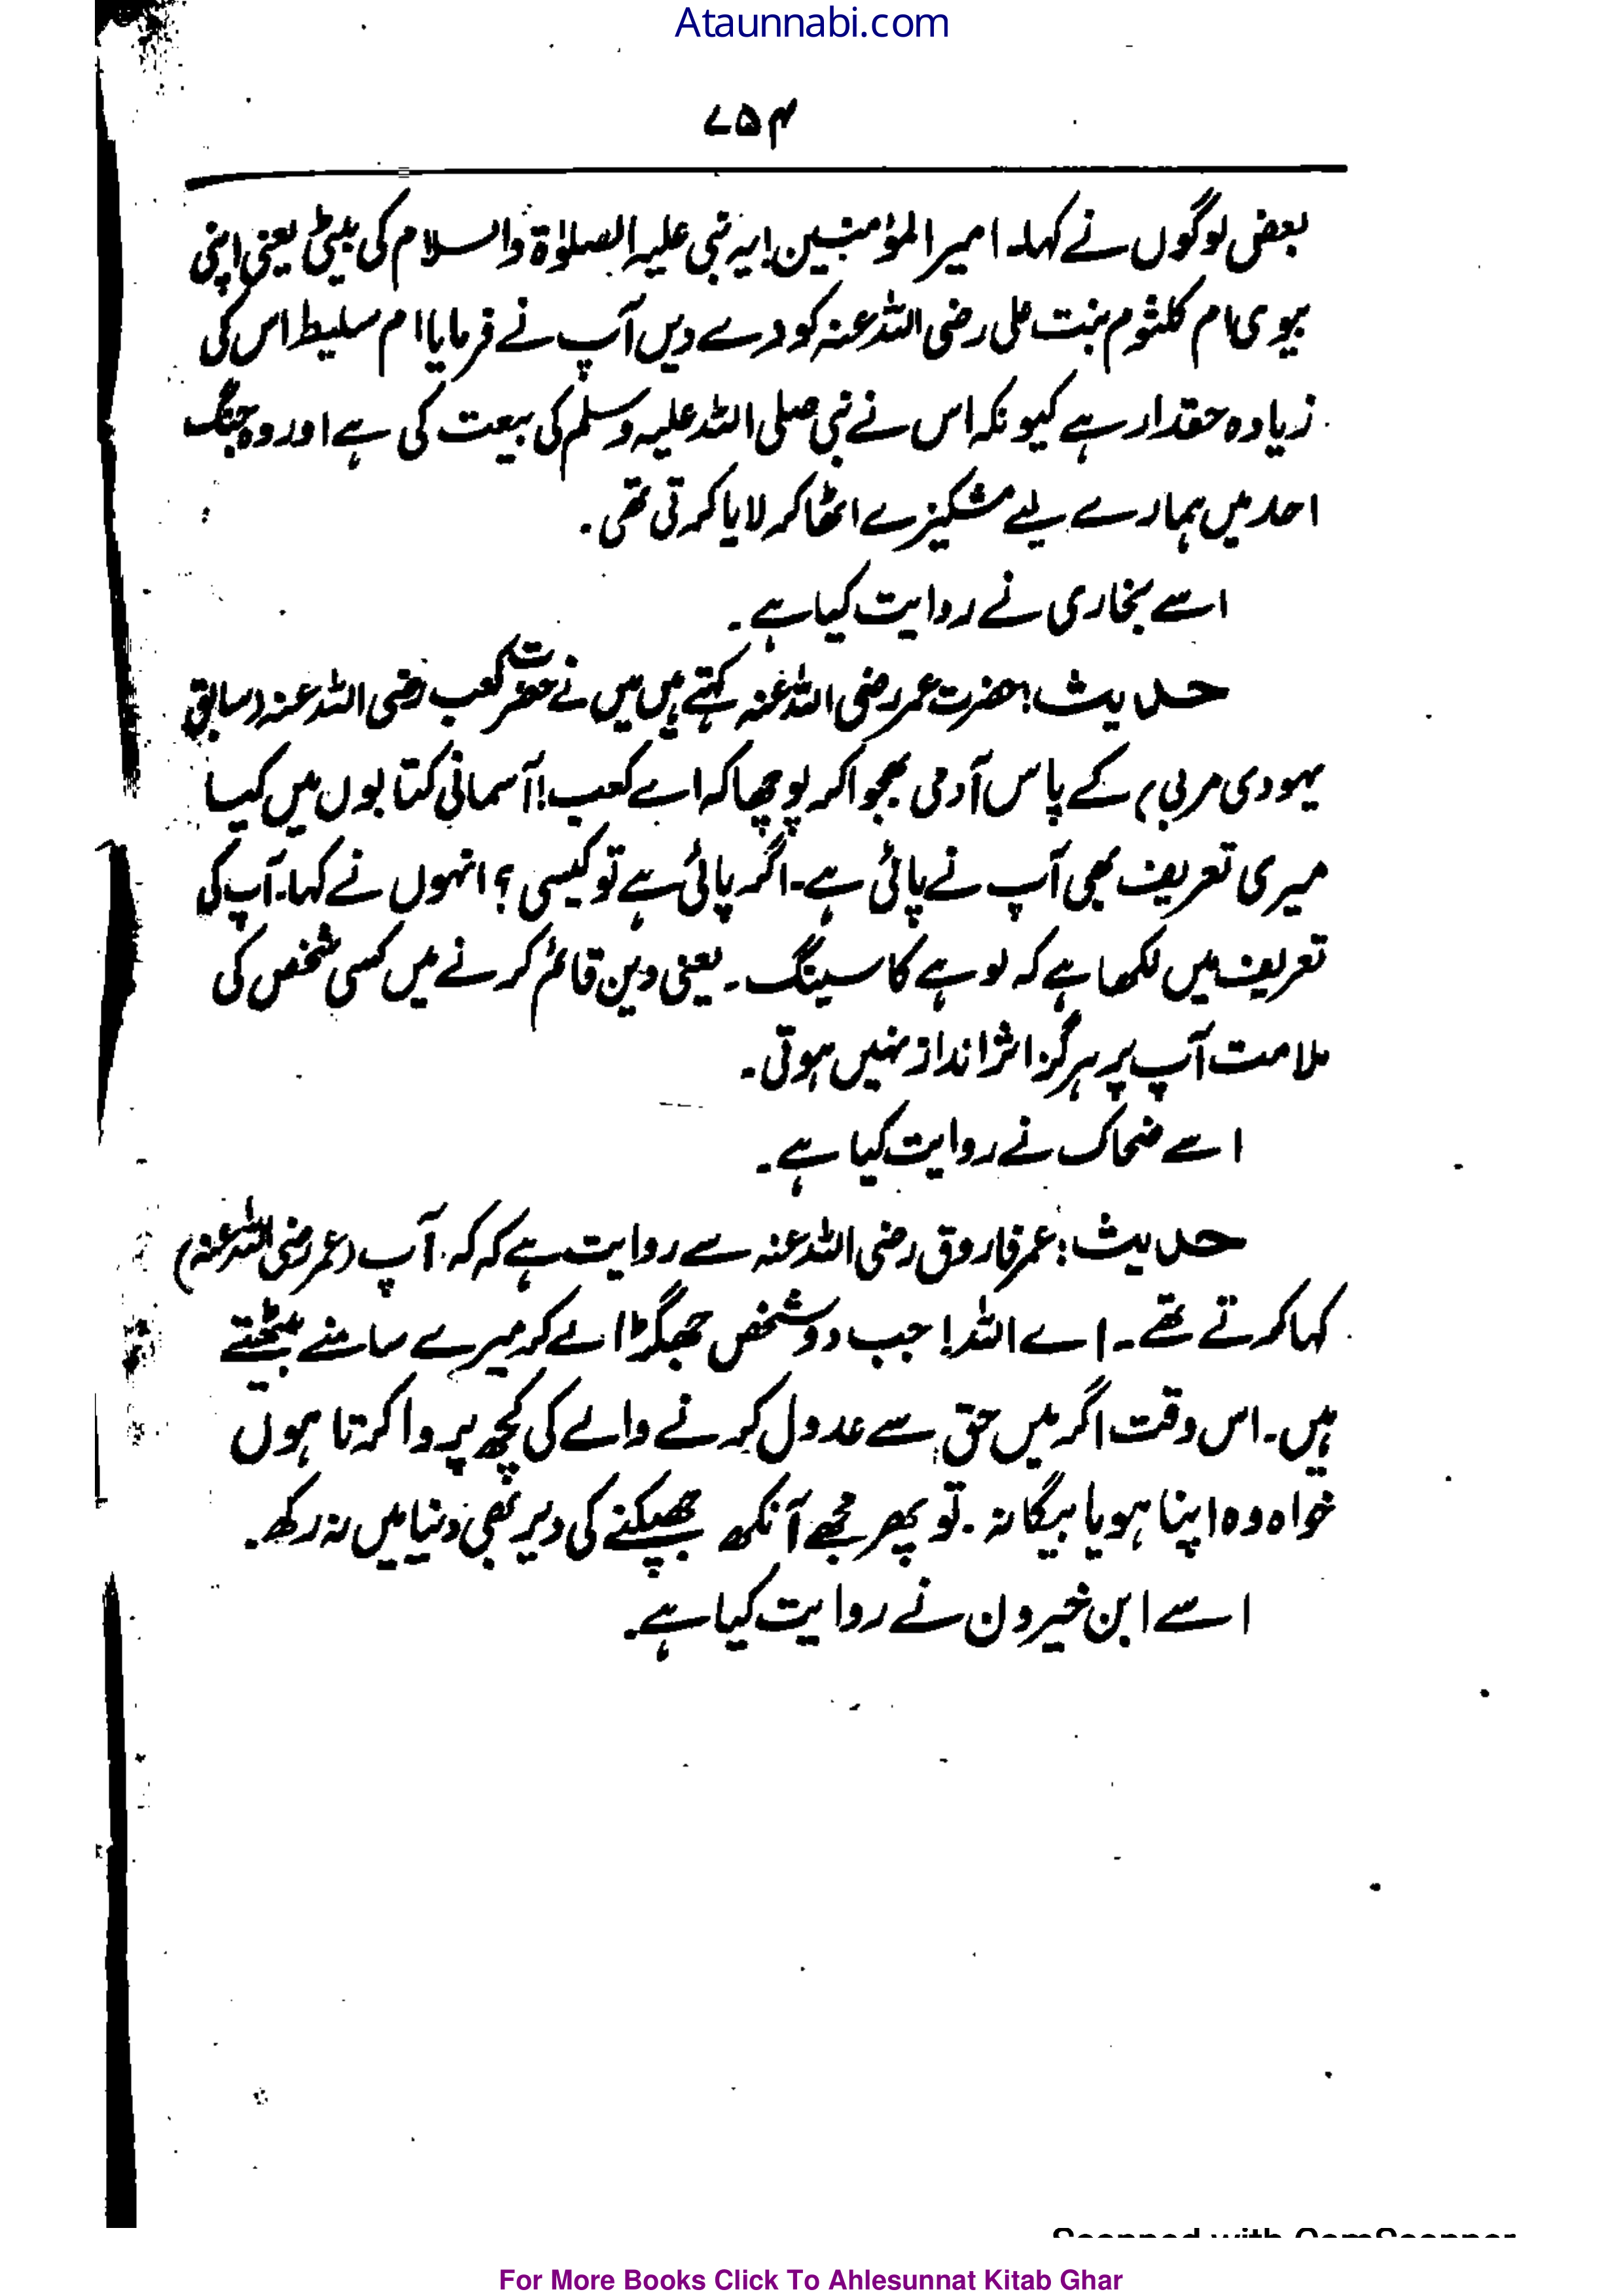 Ataunnabi.com
۷۵۴
بعض لوگوں نے کہا۔ امیر المؤمنین! یہ نبی علیہ الصلوٰۃ والسلام کی بیٹی یعنی اپنی
بیوی ام کلثوم بنت علی رضی اللہ عنہ کو دے دیں آپ نے فرمایا ام سلیط اس کی
زیادہ حقدار ہے کیونکہ اس نے نبی صلی اللہ علیہ وسلم کی بیعت کی ہے اور وہ جنگ
احد میں ہمارے لیے مشکیزے اٹھا کر لایا کرتی تھی۔
اسے بخاری نے روایت کیا ہے۔
حدیث: حضرت عمر رضی اللہ عنہ کہتے ہیں میں نے حضرت کعب رضی اللہ عنہ (سابق
یہودی مربی) کے پاس آدمی بھجوا کر پوچھا کہ اے کعب! آسمانی کتابوں میں کیا
میری تعریف بھی آپ نے پائی ہے۔ اگر پائی ہے تو کیسی؟ انہوں نے کہا۔ آپ کی
تعریف میں لکھا ہے کہ لوہے کا سینگ۔ یعنی دین قائم کرنے میں کسی شخص کی
ملامت آپ پر ہرگز اثر انداز نہیں ہوتی۔
اسے ضحاک نے روایت کیا ہے۔
حدیث: عمر فاروق رضی اللہ عنہ سے روایت ہے کہ کہ آپ (عمر رضی اللہ عنہ)
کہا کرتے تھے۔ اے اللہ! جب دو شخص جھگڑا لے کر میرے سامنے بیٹھتے
ہیں۔ اس وقت اگر میں حق سے عدول کرنے والے کی کچھ پروا کرتا ہوں
خواہ وہ اپنا ہو یا بیگانہ۔ تو پھر مجھے آنکھ جھپکنے کی دیر بھی دنیا میں نہ رکھ۔
اسے ابن خیرون نے روایت کیا ہے۔
Scanned with CamScanner
For More Books Click To Ahlesunnat Kitab Ghar